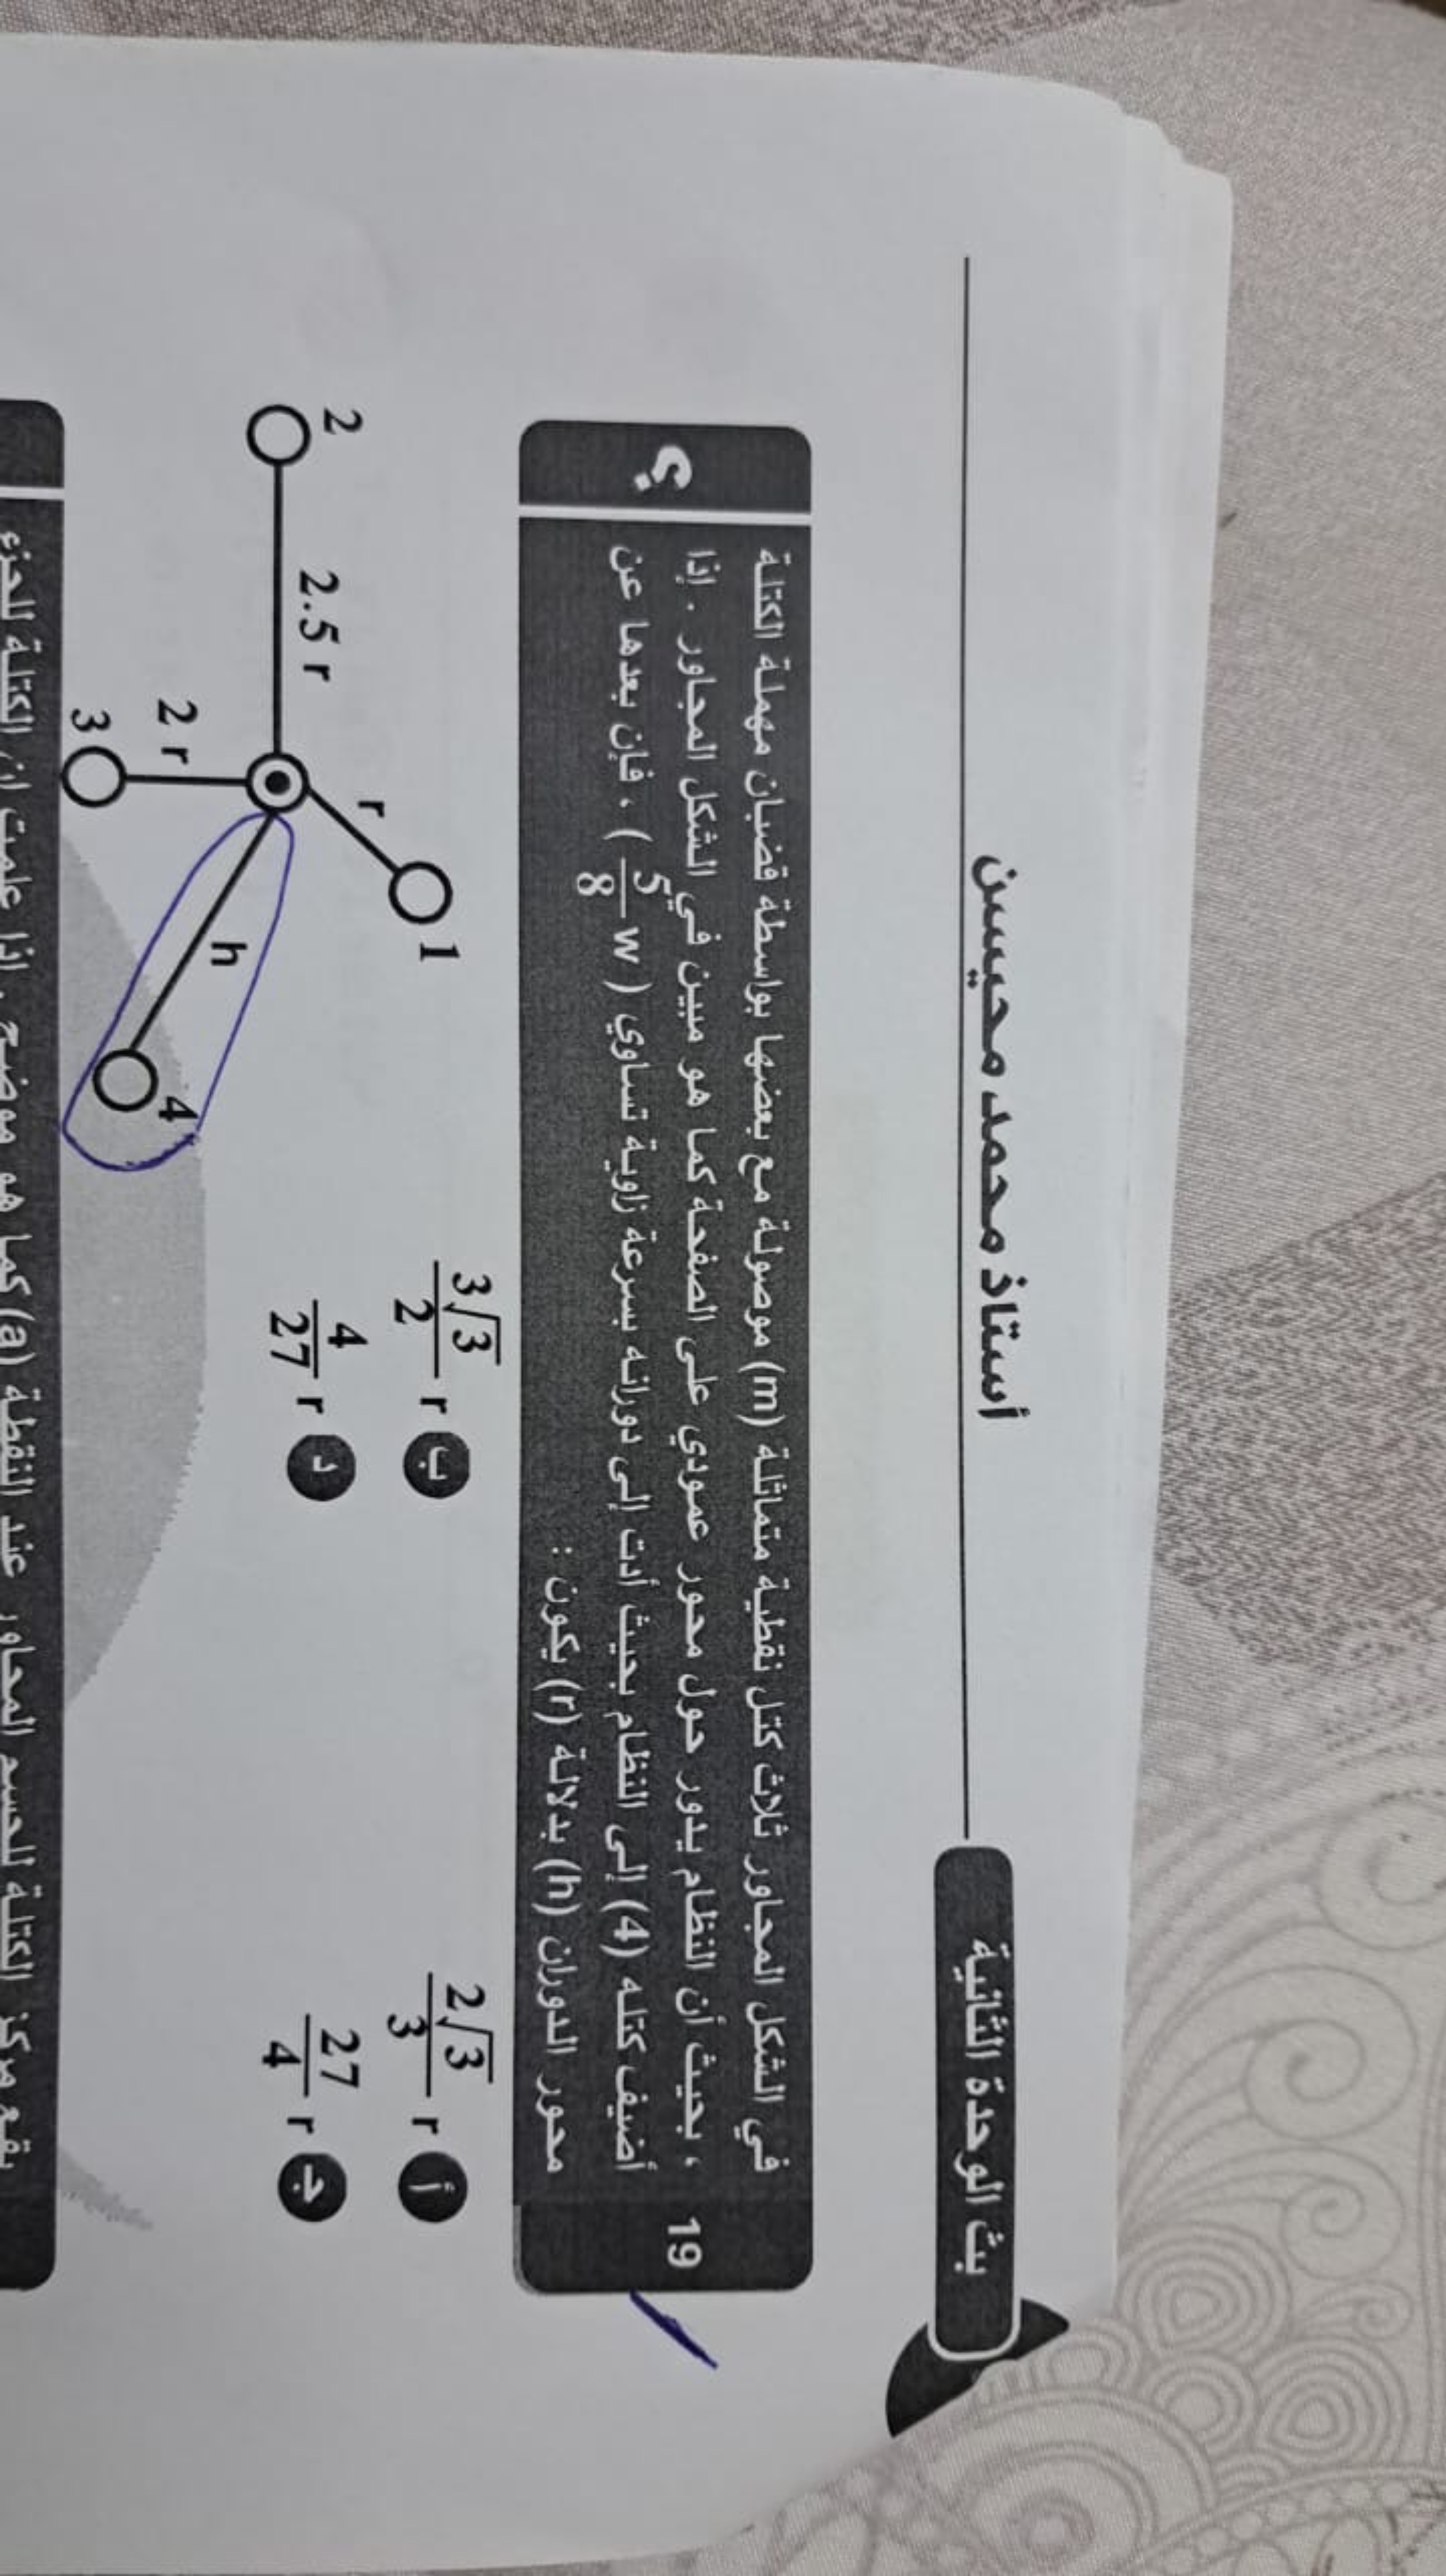 بث الوحدة الثانية
أستاذ محمد محيسن
19
في الشكل المجاور ثلاث كتل نقطية متماثلة (m) موصولة مع بعضها بواسطة قضبان مهملة الكتلة
، بحيث أن النظام يدور حول محور عمودي على الصفحة كما هو مبين في الشكل المجاور . إذا
أضيف كتله (4) إلى النظام بحيث أدت إلى دورانه بسرعة زاوية تساوي ( 5/8 w ) ، فإن بعدها عن
محور الدوران (h) بدلالة (r) يكون :
؟
أ 2√3/3 r
ب 3√3/2 r
ج 27/4 r
د 4/27 r
1
r
2
2.5 r
2 r
3
h
4
يقع مركز الكتلة للجسم المجاور عند النقطة (a) كما هو موضح ، إذا علمت ان الكتلة للجزء